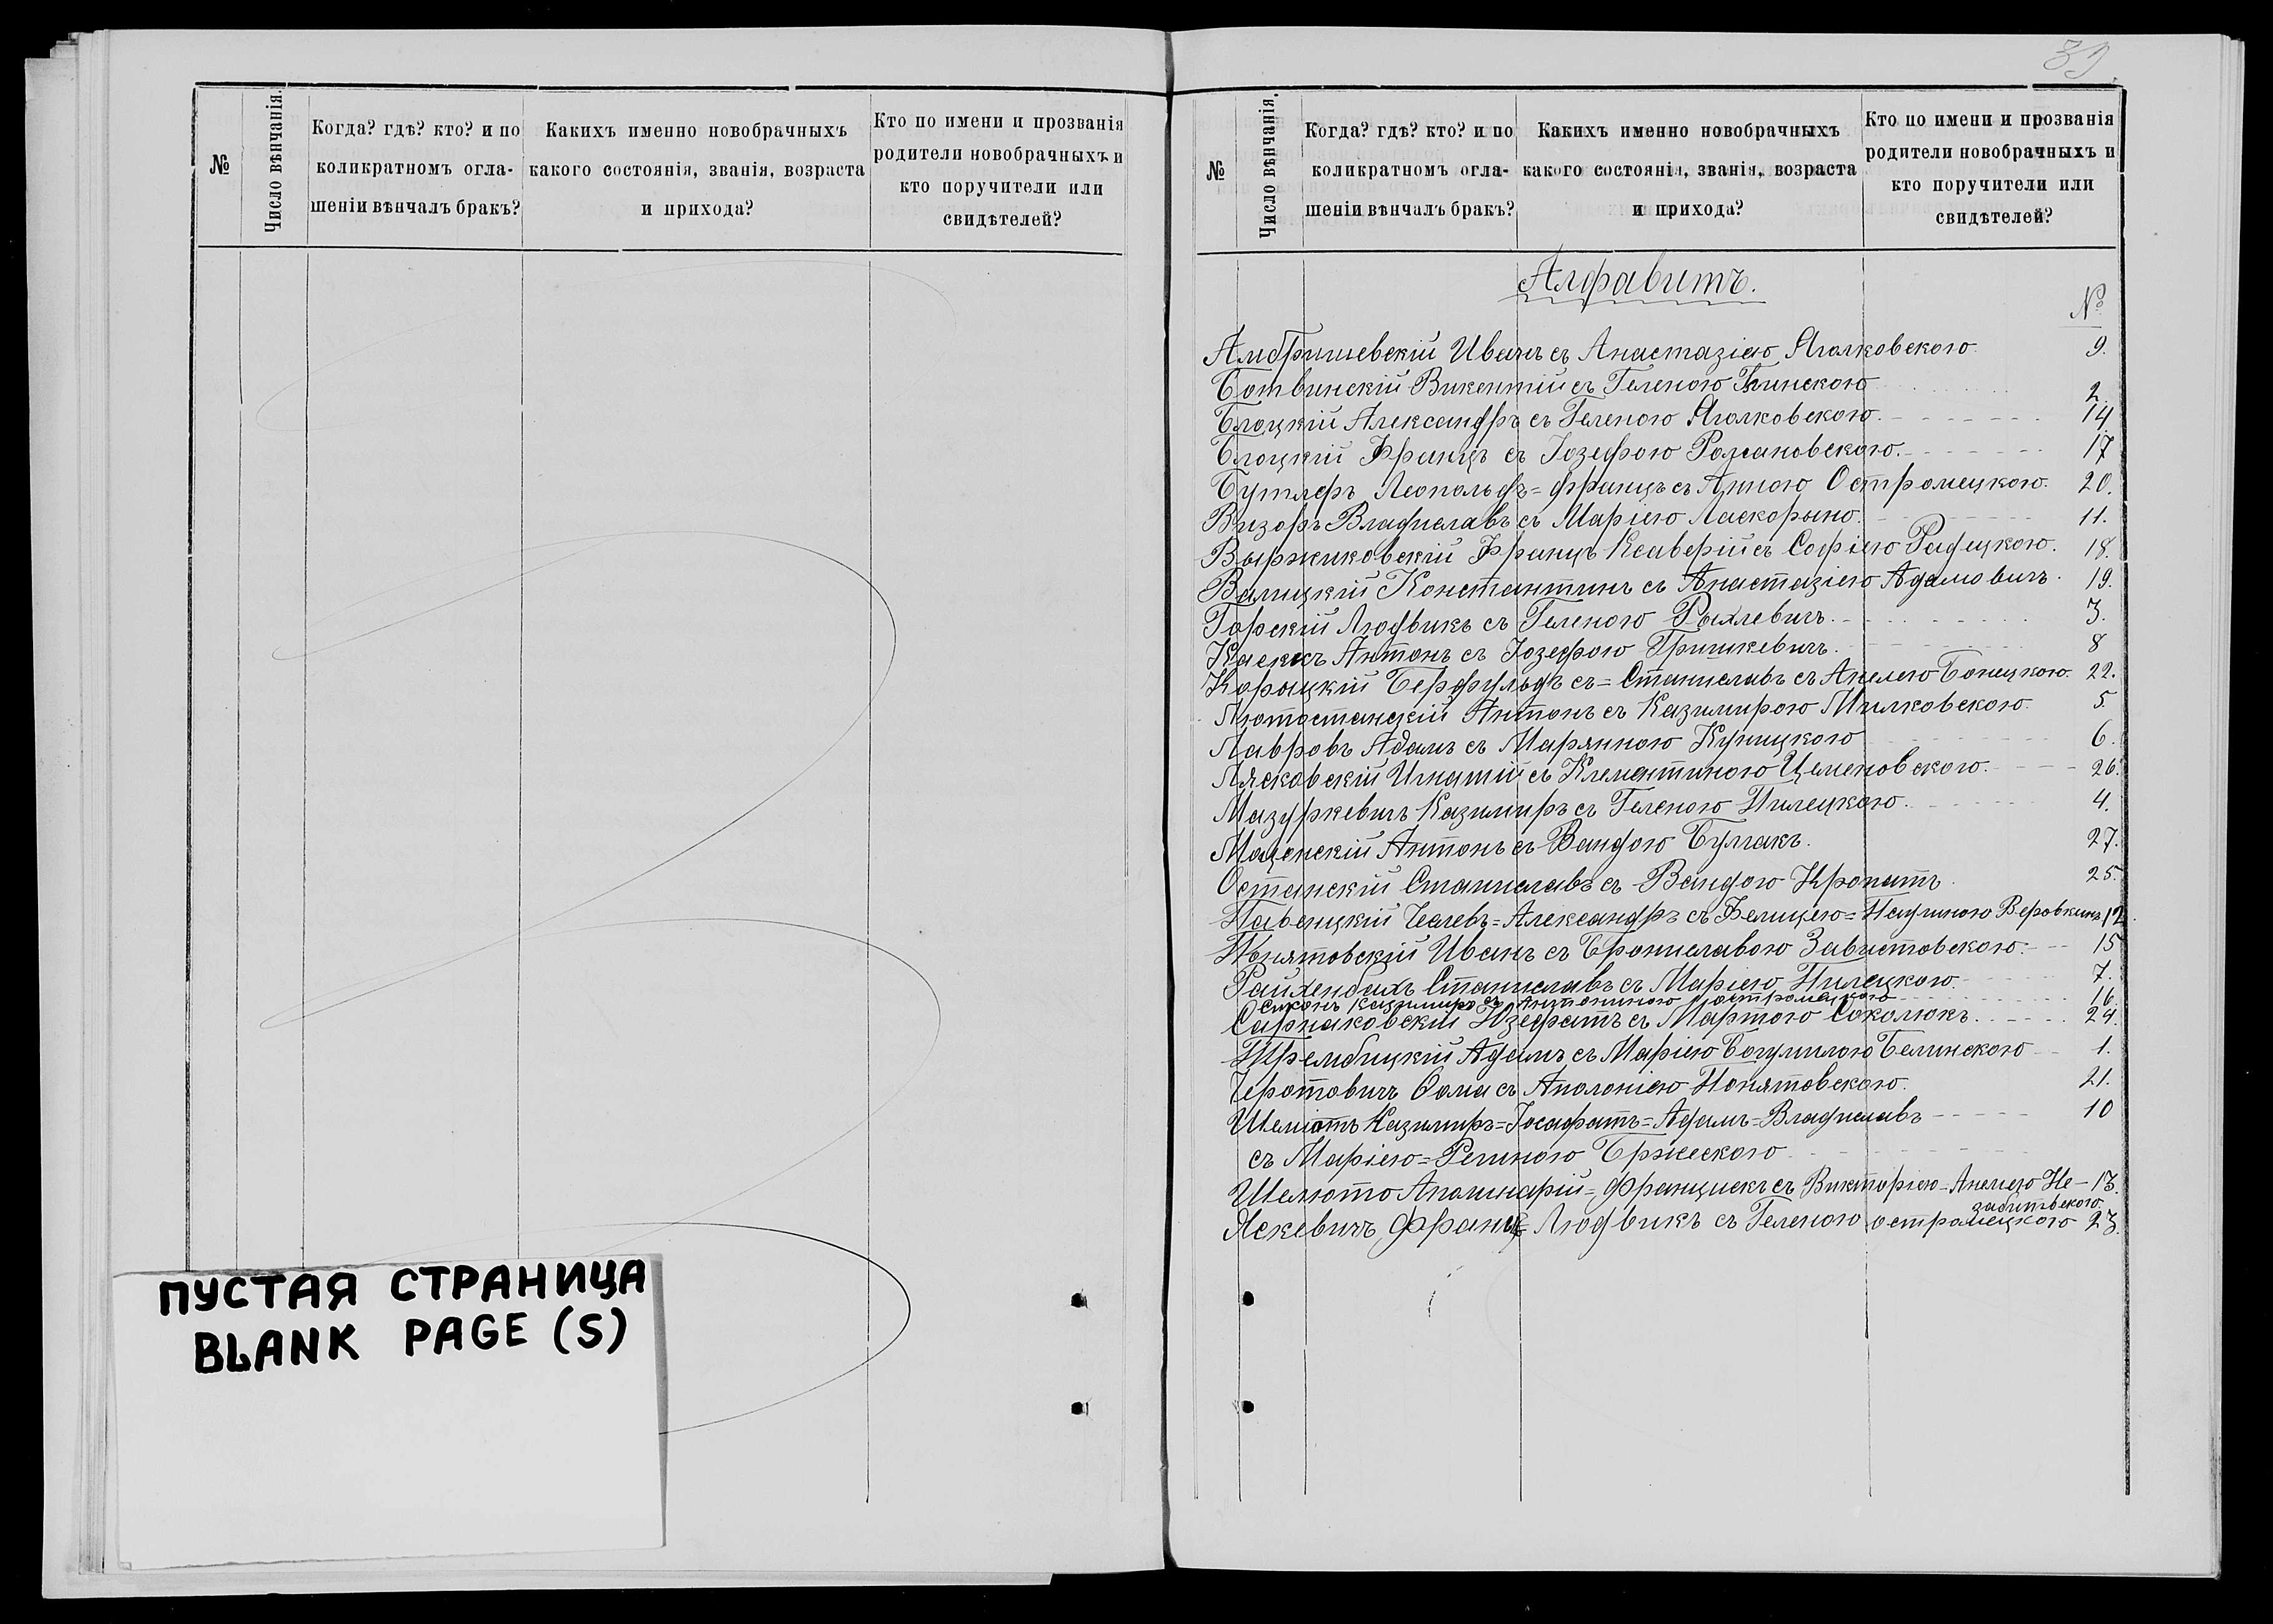 №
Число вѣнчанія.
Когда? гдѣ? кто? и по
коликратномъ огла-
шеніи вѣнчалъ бракъ?
Какихъ именно новобрачныхъ
какого состоянія, званія, возраста
и прихода?
Кто по имени и прозванія
родители новобрачныхъ и
кто поручители или
свидѣтелей?
ПУСТАЯ СТРАНИЦА
BLANK PAGE (S)
39
№
Число вѣнчанія.
Когда? гдѣ? кто? и по
коликратномъ огла-
шеніи вѣнчалъ бракъ?
Какихъ именно новобрачныхъ
какого состоянія, званія, возраста
и прихода?
Кто по имени и прозванія
родители новобрачныхъ и
кто поручители или
свидѣтелей?
Алфавитъ.
№
Иванъ съ Анастазіею Яголковского 9.
Ботвинскій Викентій съ Геленою 2.
Блоцкій Александръ съ Геленою Яголковского 14
Блоцкій Францъ съ Іозефою Романовского. 17
Бутлеръ Леопольдъ=Францъ съ Анною Остромецкою. 20.
Визоръ Владиславъ съ Маріею Ласкорыно. 11.
Выржиковскій Францъ Ксаверій съ Софіею Радецкою. 18.
Валицкій Константинъ съ Анастазіею Адамовичъ. 19.
Горскій Людвикъ съ Геленою Рыхлевичъ. 3.
Антонъ съ Іозефою Гришкевичъ. 8
Корыцкій съ=Станиславъ съ Анелею Бонецкою. 22.
Лютостанскій Антонъ съ Казимирою Милковского. 5.
Лавровъ Адамъ съ Марянною Куницкого 6.
Лясковскій Игнатій съ Клементиною Цеменовского. 26.
Мазуркевичъ Казимиръ съ Геленою Пилецкою. 4.
Антонъ съ Вандою Булгакъ. 27.
Останскій Станиславъ съ Вандою 25.
Александръ съ Фелицею=Паулиною 12
Понятовскій Иванъ съ Брониславою Завистовского. 15
Райхенбахъ Станиславъ съ Маріею Пилецкою. 7.
Казимиръ съ Антониною остромецкого 16.
Сарнаковскій Юзефатъ съ Мартою Соколюкъ. 24.
Трембицкій Адамъ съ Маріею Богумилою Белинскою 1.
Черотовичъ Ѳома съ Аполоніею Понятовского. 21.
Шеліотъ Казимиръ=Іосафатъ=Адамъ=Владиславъ 10
съ Маріею=Региною Бржеского
Шелюто Аполинарій=Францискъ съ Викторіею=Анелею Не- 13.
забитовского.
Яскевичъ Францъ Людвикъ съ Геленою остромецкого 23.